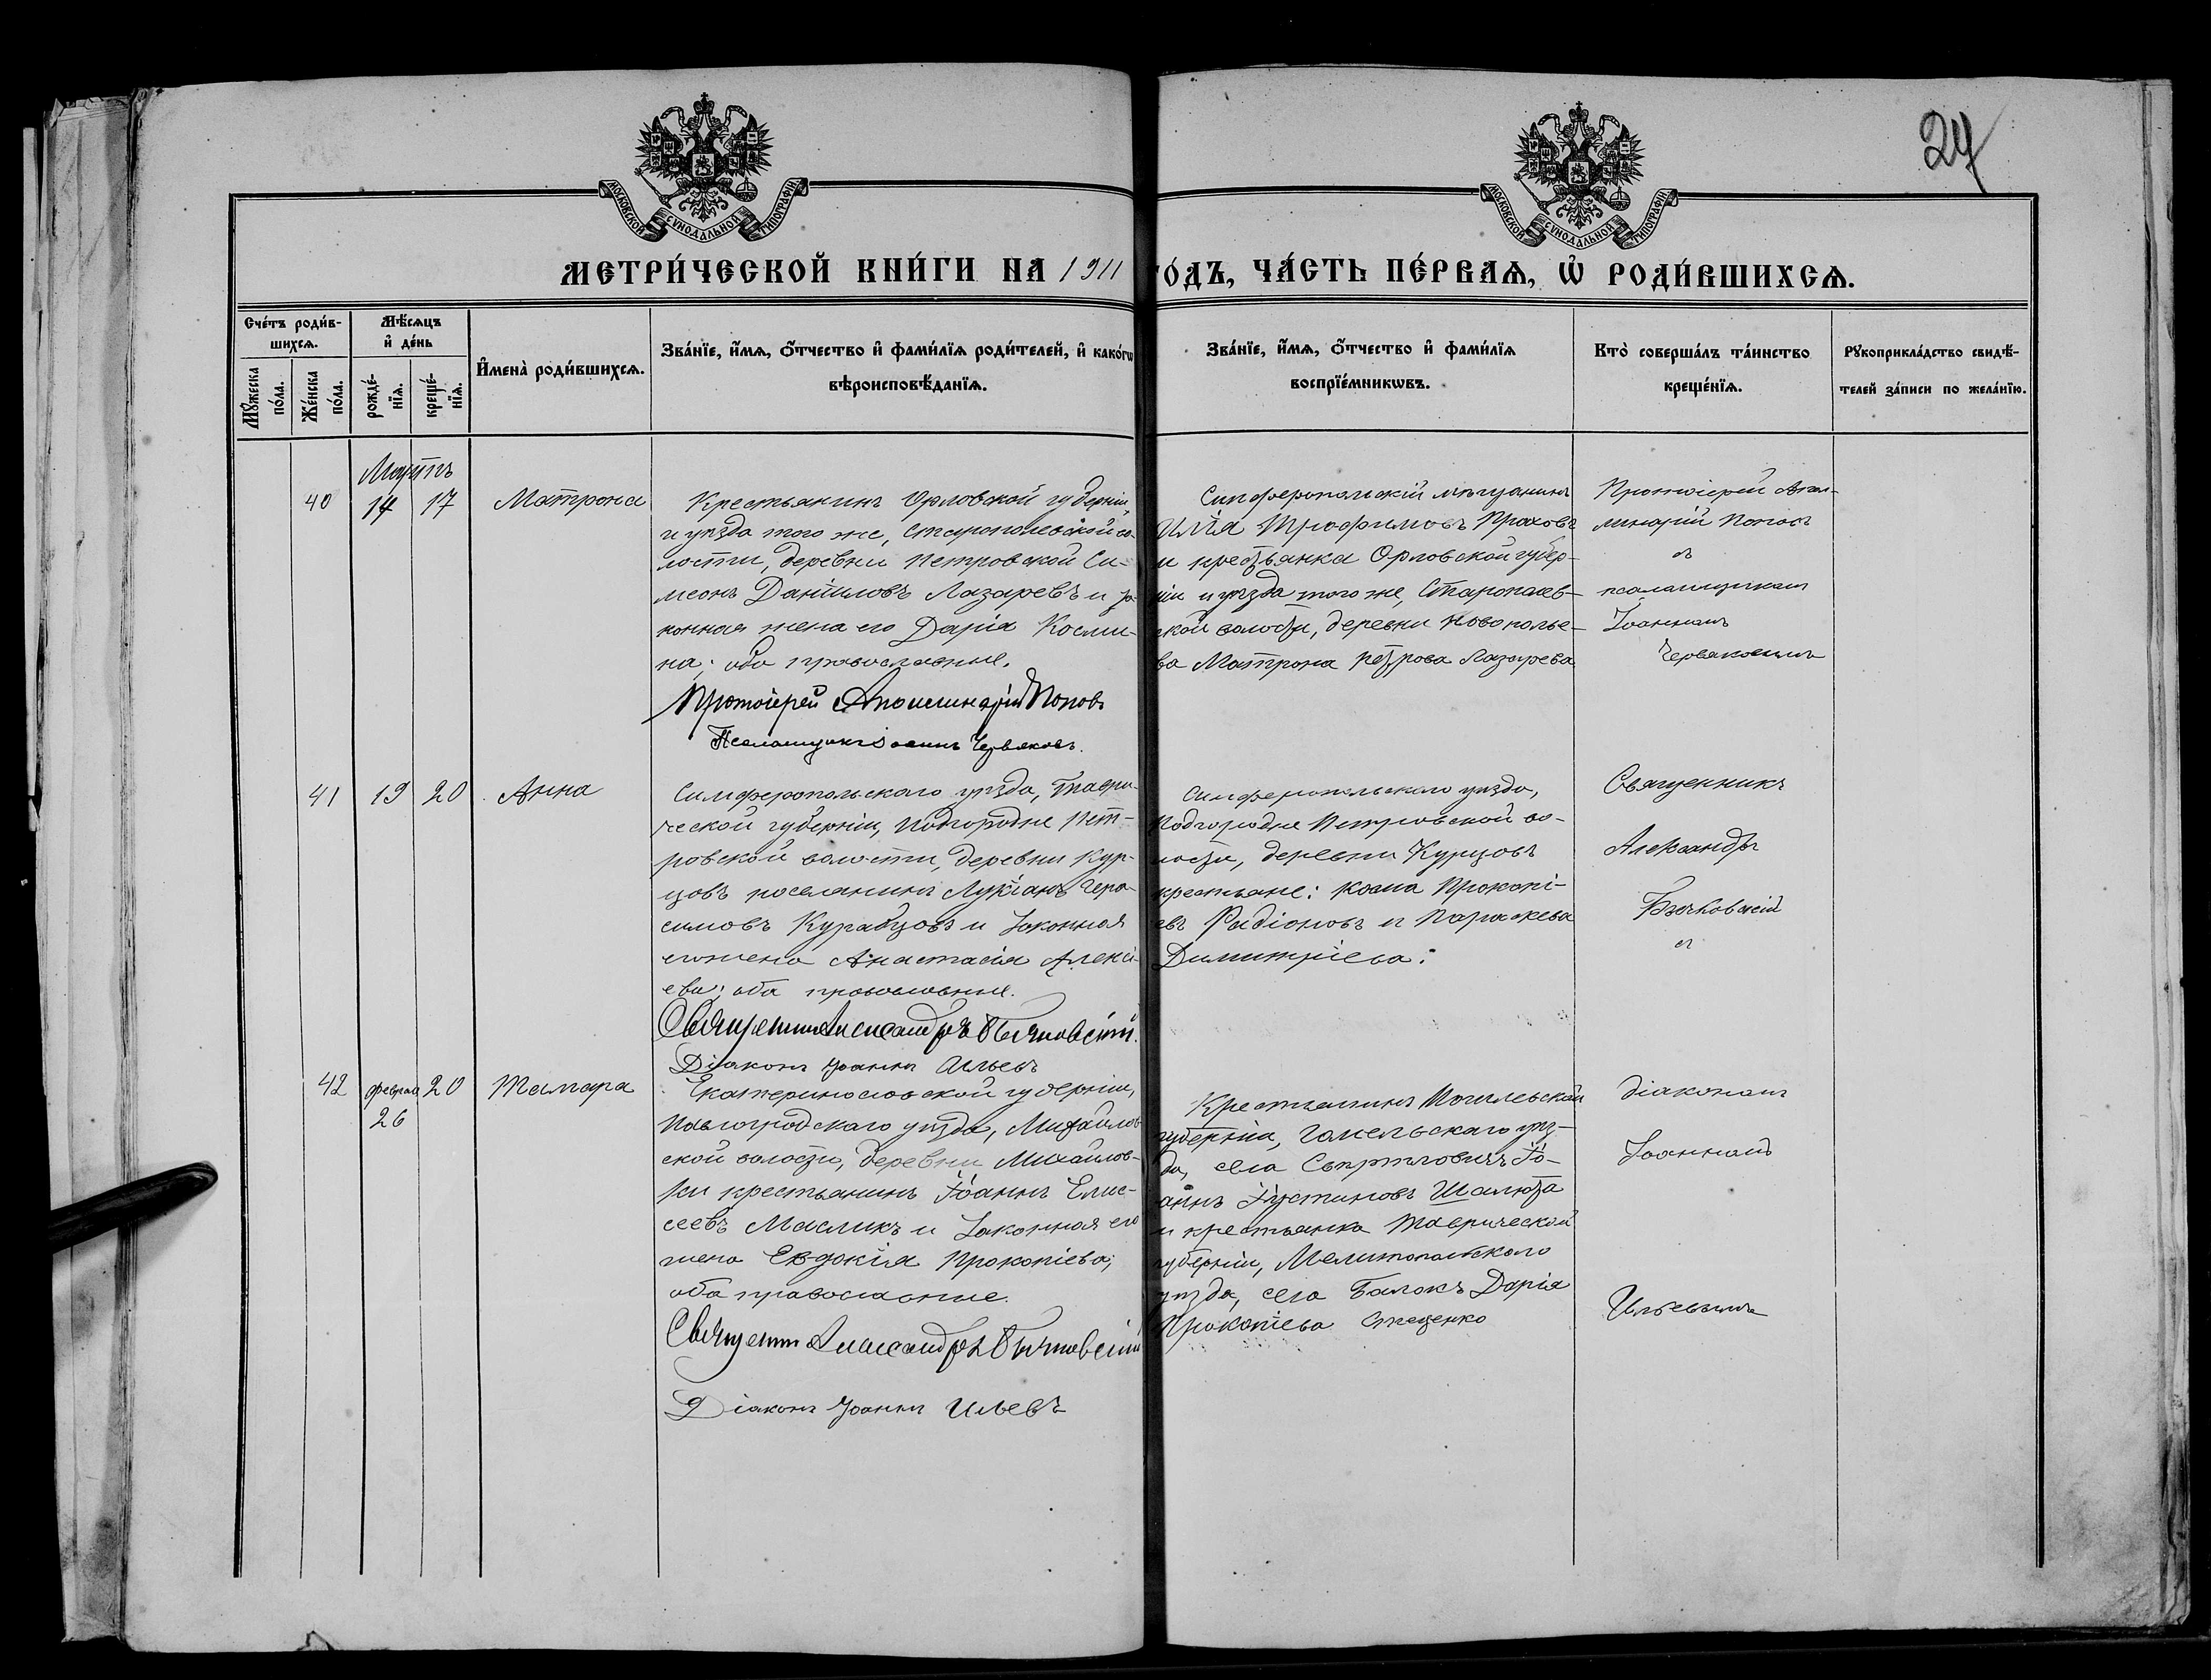 24
МОСКОВСКОЙ СѴНОДАЛЬНОЙ ТИПОГРАФІИ
МОСКОВСКОЙ СѴНОДАЛЬНОЙ ТИПОГРАФІИ
МЕТРИ́ЧЕСКОЙ КНИ́ГИ НА 1911 ГО́ДЪ, ЧА́СТЬ ПЕ́РВАѦ, Ѡ҆ РОДИ́ВШИХСѦ.
Сче́тъ роди́в-
шихсѧ.
Мꙋ́жеска по́ла.
Же́нска по́ла.
Мѣ́сѧцъ
и҆ де́нь
рожде́-
нїѧ.
креще́-
нїѧ.
И҆мена̀ роди́вшихсѧ.
Зва́нїе, и҆́мѧ, ѻ҆́тчество и҆ фами́лїѧ роди́телей, и҆ како́гѡ
вѣроисповѣ́данїѧ.
Зва́нїе, и҆́мѧ, ѻ҆́тчество и҆ фами́лїѧ
воспрїе́мникѡвъ.
Кто̀ соверша́лъ та́инство
креще́нїѧ.
Рꙋкоприкла́дство свидѣ́-
телей за́писи по жела́нїю.
Мартъ
40 14 17 Матрона
Крестьянинъ Орловской губерніи,
и уѣзда того же, Старопольской во-
лости, деревни Петровской Си-
меонъ Даніиловъ Лазаревъ и за-
конная жена его Дарія Косми-
на; оба православные.
Протоіерей Аполлинарій Поповъ
Псаломщикъ Іоаннъ Червяковъ.
Симферопольскій мѣщанинъ
Илія Трофимовъ Проховъ
и крестьянка Орловской губер-
ніи и уѣзда того же, Старополь-
ской волости, деревни Новополье-
ва Матрона Петрова Лазарева
Протоіерей Апол-
линарій Поповъ
съ
псаломщикомъ
Іоанномъ
Червяковымъ
41 19 20 Анна
Симферопольскаго уѣзда, Таври-
ческой губерніи, Подгородне Пет-
ровской волости, деревни Кур-
цовъ поселянинъ Лукіанъ Гера-
симовъ Курабцовъ и законная
его жена Анастасія Алексі-
ева; оба православные.
Священникъ Александръ Бычковскій.
Діаконъ Іоаннъ Ильевъ
Симферопольскаго уѣзда,
Подгородне Петровской во-
лости, деревни Курцовъ
крестьяне: Косма Прокопі-
евъ Радіоновъ и Параскева
Димитріева.
Священникъ
Александръ
Бычковскій
съ
42 февраля 26 20 Тамара
Екатеринославской губерніи,
Павлоградскаго уѣзда, Михайлов-
ской волости, деревни Михайлов-
ки крестьянинъ Іоаннъ Елис-
сеевъ Масликъ и законная его
жена Евдокія Прокопіева;
оба православные.
Священникъ Александръ Бычковскій
Діаконъ Іоаннъ Ильевъ
Крестьянинъ Могилевской
губерніи, Гомельскаго уѣз-
да, села Іо-
аннъ Іустиновъ Шалюта
и крестьянка Таврической
губерніи, Мелитопольскаго
уѣзда, села Балокъ Дарія
Прокопіева Стеценко
діакономъ
Іоанномъ
Ильевымъ